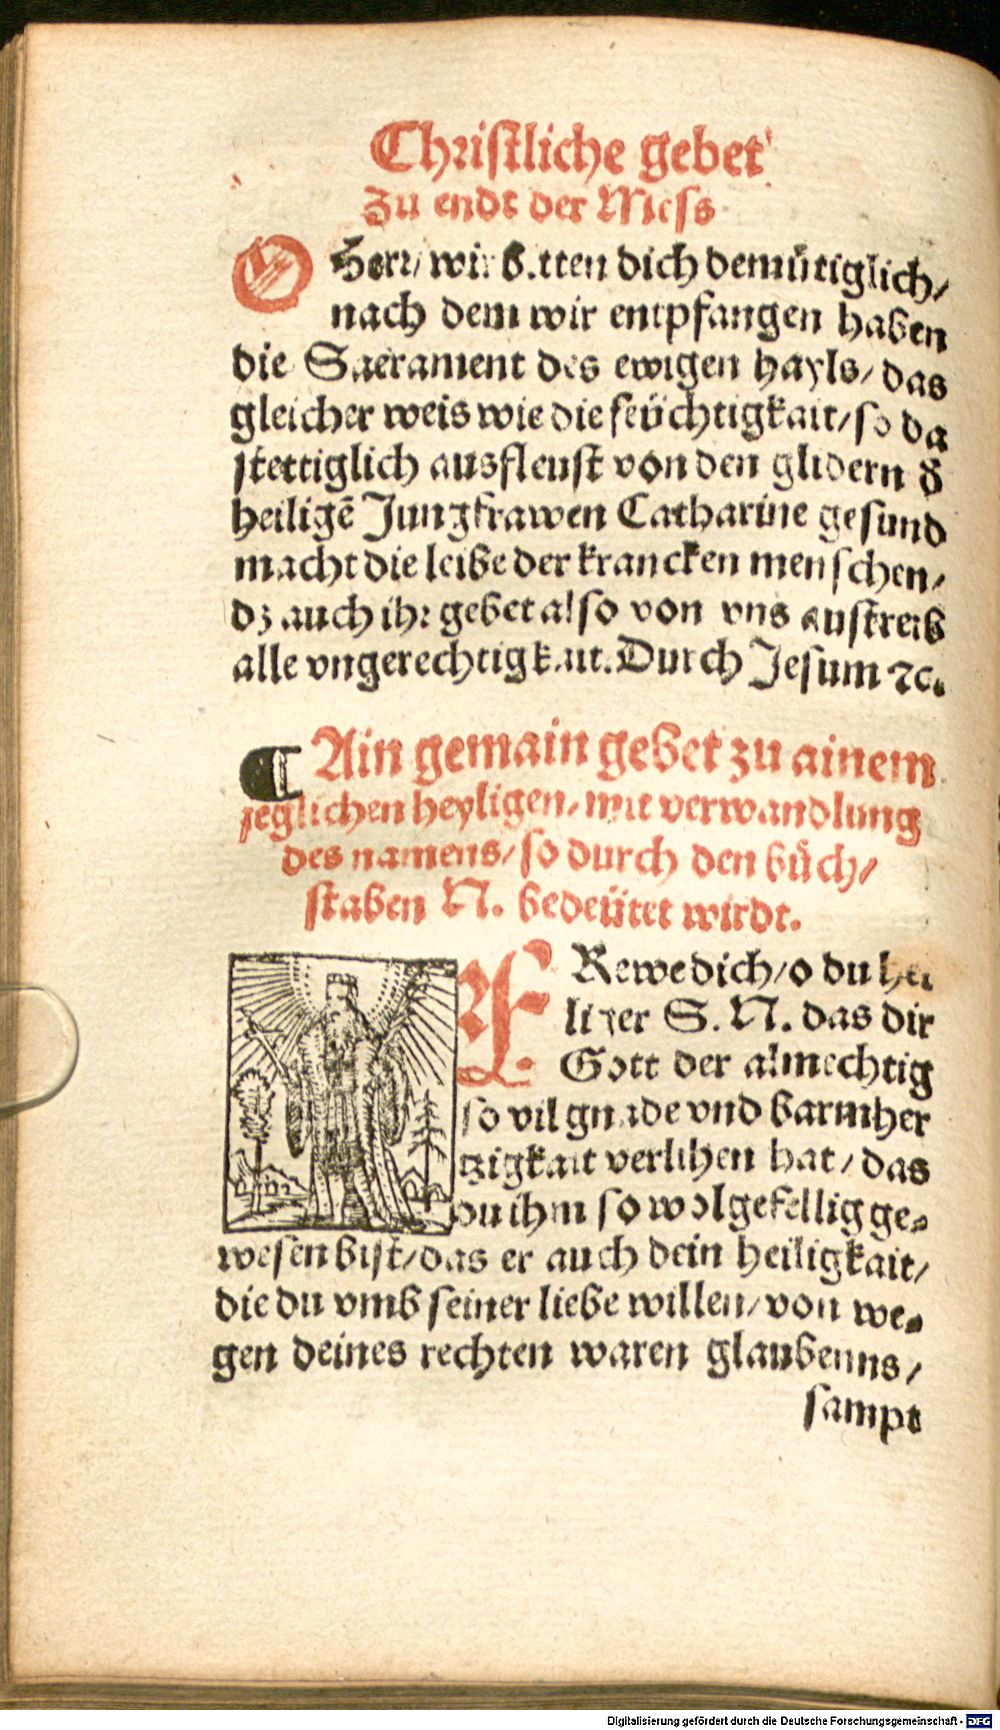 Christliche gebet
Zu endt der Mess
O Herr/ wir bitten dich demütiglich/
nach dem wir entpfangen haben
die Sacrament des ewigen hayls/ das
gleicher weis wie die feüchtigkait/ so da
stettiglich ausfleust von den glidern d̄
heiligē Jungfrawen Catharine gesund
macht die leibe der krancken menschen/
dz auch ihr gebet also von vns austreib
alle vngerechtigkait. Durch Jesum ⁊c.
¶ Ain gemain gebet zu ainem
jeglichen heyligen/ mit verwandlung
des namens/ so durch den bůch/
staben N. bedeütet wirdt.
FRewe dich/ o du hei
liger S. N. das dir
Gott der almechtig
so vil gnade vnd barmher
tzigkait verlihen hat/ das
du ihm so wolgefellig ge⸗
wesen bist/ das er auch dein heiligkait/
die du vmb seiner liebe willen/ von we⸗
gen deines rechten waren glaubenns/
sampt
Digitalisierung gefördert durch die Deutsche Forschungsgemeinschaft - DFG